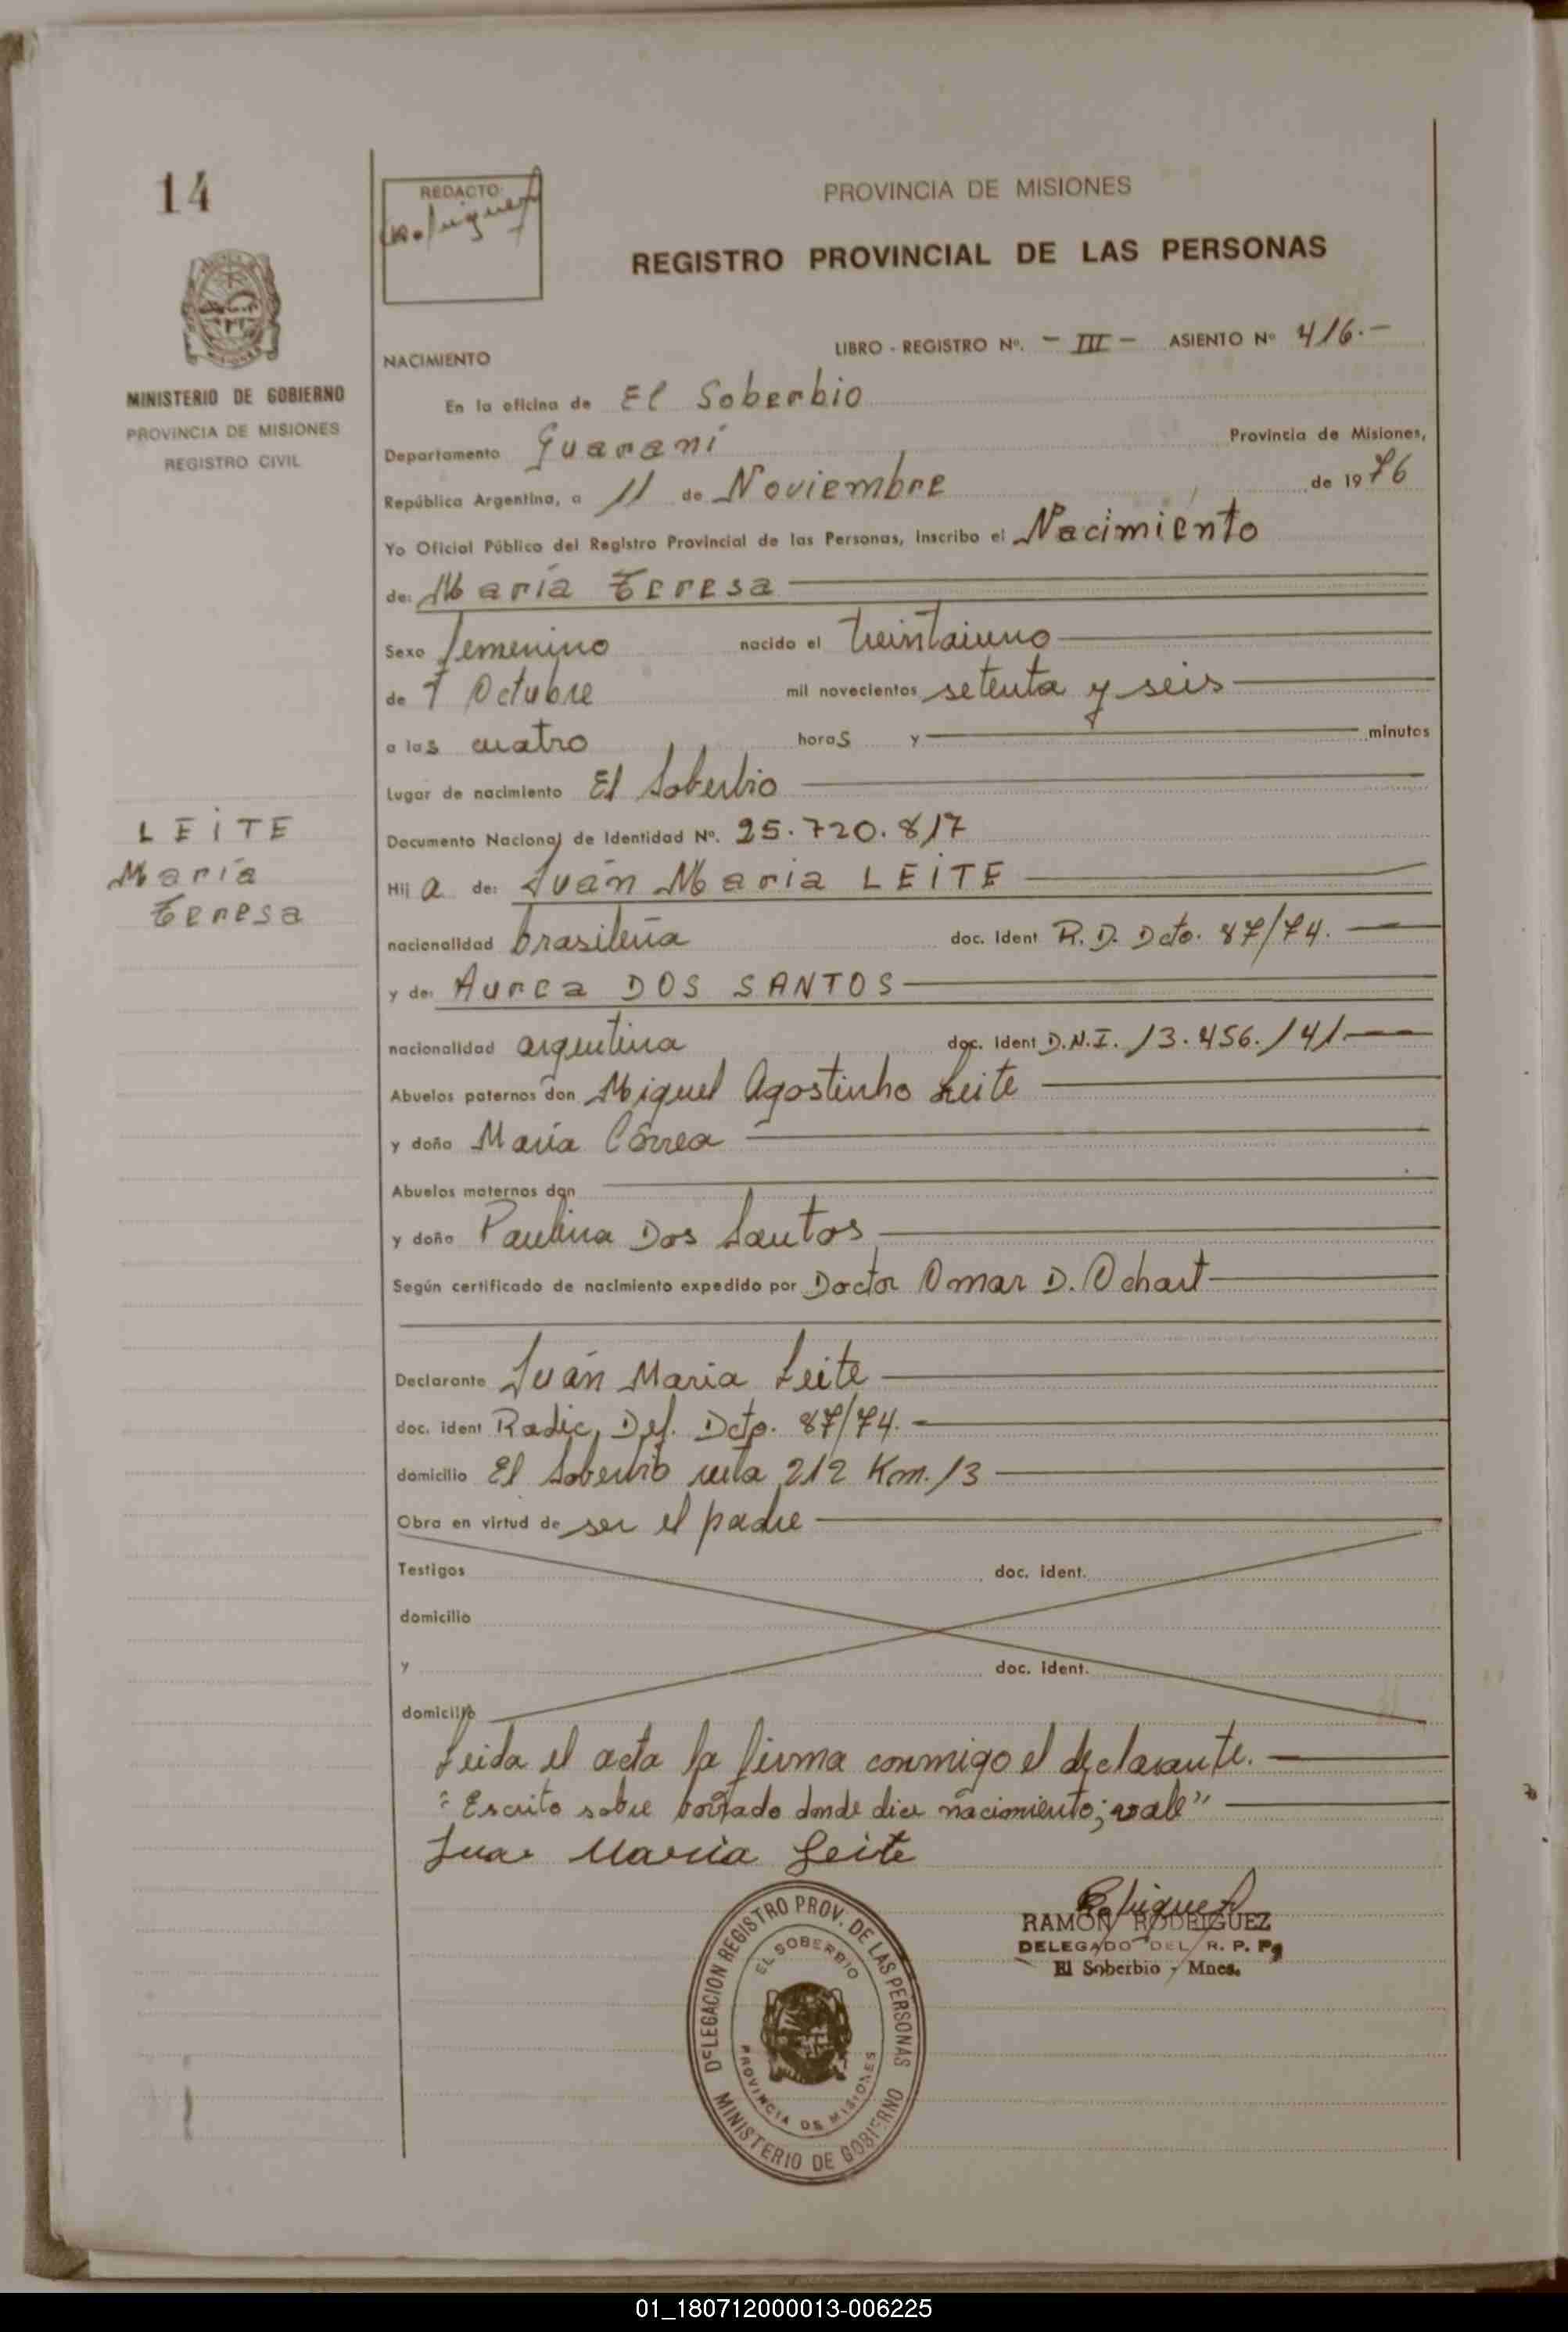 14
REDACTO
Rodriguez
PROVINCIA DE MISIONES
REGISTRO PROVINCIAL DE LAS PERSONAS
MINISTERIO DE GOBIERNO
PROVINCIA DE MISIONES
REGISTRO CIVIL
NACIMIENTO
LIBRO - REGISTRO Nº. - III - ASIENTO Nº 416.-
En la oficina de El Soberbio
Departamento Guaraní Provincia de Misiones,
República Argentina, a 11 de Noviembre de 1976
Yo Oficial Público del Registro Provincial de las Personas, inscribo el Nacimiento
de: María Teresa
Sexo femenino nacido el treintaiuno
de Octubre mil novecientos setenta y seis
a las cuatro horas y minutos
Lugar de nacimiento El Soberbio
LEITE
María
Teresa
Documento Nacional de Identidad Nº. 25.720.817
Hija de: Juán Maria LEITE
nacionalidad brasileña doc. Ident R. D. Dcto. 87/74.
y de: Aurea DOS SANTOS
nacionalidad argentina doc. Ident D.N.I. 13.456.141
Abuelos paternos don Miguel Agostinho Leite
y doña María Côrrea
Abuelos maternos don
y doña Paulina Dos Santos
Según certificado de nacimiento expedido por Doctor Omar D. Ochart
Declarante Juán Maria Leite
doc. ident Radic. Def. Dcto. 87/74.
domicilio El Soberbio ruta 212 Km. 13
Obra en virtud de ser el padre
Testigos doc. ident.
domicilio
y doc. ident.
domicilio
Leida el acta la firma conmigo el declarante.
"Escrito sobre borrado donde dice nacimiento; vale"
Juan Maria Leite
Rodriguez
RAMON RODRIGUEZ
DELEGADO DEL R. P. P.
El Soberbio - Mnes.
DELEGACION REGISTRO PROV. DE LAS PERSONAS
EL SOBERBIO
PROVINCIA DE MISIONES
MINISTERIO DE GOBIERNO
01_180712000013-006225